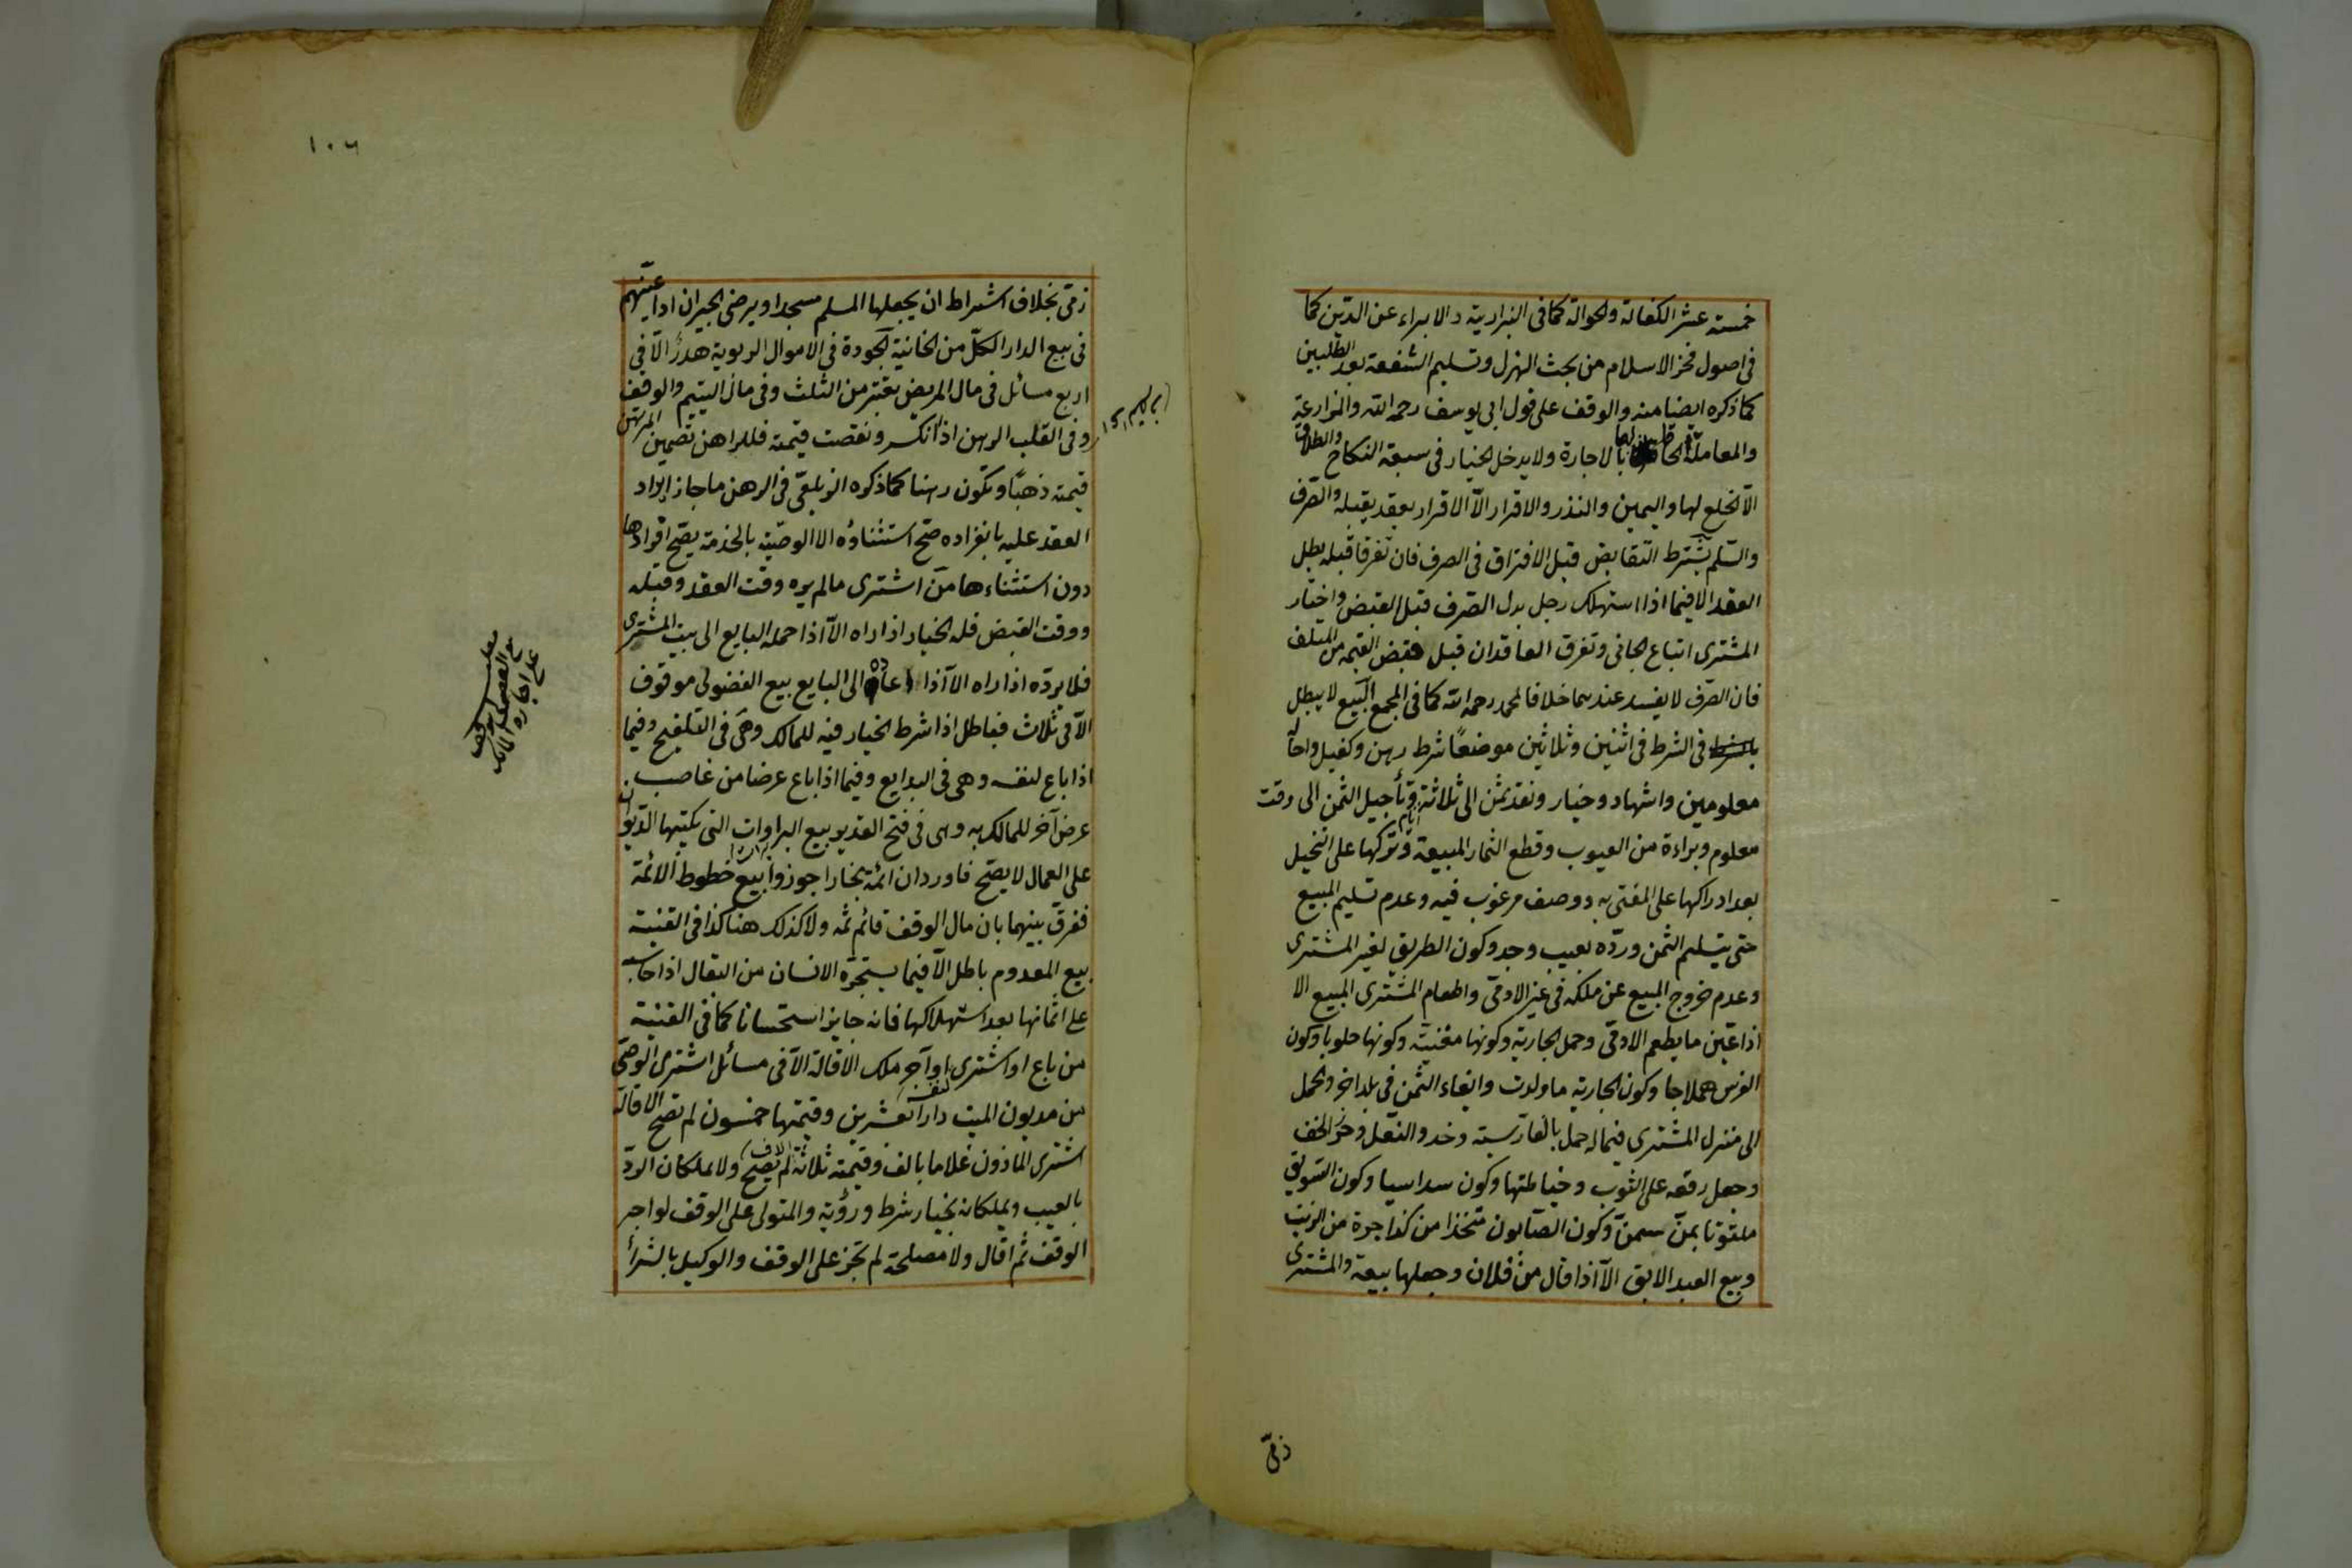 خمسة عشر الكفالة والحوالة كما فى البزازية والابراء عن الدّين كما
فى اصول فخر الاسلام من بحث الهزل وتسليم الشفعة بعد الطلبين
كما ذكره ايضا منه والوقف على قول ابى يوسف رحمه الله والمزارعة
والمعاملة الحاقا لها بالاجارة ولا يدخل الخيار فى سبعة النكاح والطلاق
الّا الخلع لها واليمين والنذر والاقرار الّا الاقرار بعقد يقبله والصّرف
والسّلم يشترط التقابض قبل الافتراق فى الصرف فان تفرقا قبله بطل
العقد الا فيما اذا استهلك رجل بدل الصّرف قبل القبض واختار
المشترى اتباع الجانى وتفرق العاقدان قبل قبض القيمة من المتلف
فان الصّرف لا يفسد عندهما خلافا لمحمد رحمه الله كما فى المجمع البيع لا يبطل
بالشرط فى الشرط فى اثنين وثلاثين موضعًا شرط رهن وكفيل واحالة
معلومين واشهاد وخيار ونقد ثمن الى ثلاثة ايام وتأجيل الثمن الى وقت
معلوم وبراءة من العيوب وقطع الثمار المبيعة وتركها على النخيل
بعد ادراكها على المفتى به ووصف مرغوب فيه وعدم تسليم المبيع
حتى يتسلم الثمن وردّه بعيب وجد وكون الطريق لغير المشترى
وعدم خروج المبيع عن ملكه فى غير الادمىّ واطعام المشترى المبيع الا
اذا عيّن ما يطعم الادمىّ وحمل الجارية وكونها مغنيّة وكونها حلوبا وكون
الفرس هملاجا وكون الجارية ما ولدت وايفاء الثمن فى بلد اخر والحمل
الى منزل المشترى فيما له حمل بالفارسية وحذو النعل وخرز الخف
وجعل رقعة على الثوب وخياطتها وكون سداسيا وكون السّويق
ملتوتا بمنّ سمن وكون الصّابون متّخذا من كذا جرة من الزيت
وبيع العبد الابق الّا اذا قال من فلان وجعلها بيعة والمشترى
ذمّى
١٠٦
ذمّى بخلاف اشتراط ان يجعلها المسلم مسجدا ويرضى الجيران اذا عيّنهم
فى بيع الدار الكلّ من الخانيّة الجودة فى الاموال الربوية هدر الّا فى
اربع مسائل فى مال المريض يعتبر من الثلث وفى مال اليتيم والوقف
وفى القلب الرهن اذا انكسر ونقصت قيمته فللراهن تضمين المرتهن
قيمته ذهبًا وتكون رهنا كما ذكره الزيلعىّ فى الرهن ما جاز ايراد
العقد عليه بانفراده صحّ استثناؤه الا الوصيّة بالخدمة يصحّ افرادها
دون استثناءها من اشترى مالم يره وقت العقد وقبله
ووقت القبض فله الخيار اذا راه الّا اذا حمله البايع الى بيت المشترى
فلا يردّه اذا راه الا اذا اعاده الى البايع بيع الفضولى موقوف
الّا فى ثلاث فباطل اذا شرط الخيار فيه للمالك وهى فى التلقيح وفيما
اذا باع لنفسه وهى فى البدايع وفيما اذا باع عرضا من غاصب
عرض آخر للمالك به وهى فى فتح القدير بيع البراوات التى يكتبها الديوان
على العمال لا يصّح فاورد ان ائمة بخارا جوزوا بيع خطوط الائمّة
ففرق بينهما بان مال الوقف قائم ثمّه ولا كذلك هنا كذا فى القنية
بيع المعدوم باطل الّا فيما يستجرّه الانسان من البقال اذا حاسبه
على اثمانها بعد استهلاكها فانه جايز استحسانا كما فى القنية
من باع او اشترى او آجر ملك الاقالة الّا فى مسائل اشترى الوصىّ
من مديون الميت دارا بعشرين وقيمتها خمسون لم تصح الاقالة
اشترى الماذون غلاما بالف وقيمته ثلاثة الاف لم تصح ولا يملكان الردّ
بالعيب ويملكانه بخيار شرط ورؤية والمتولى على الوقف لو اجر
الوقف ثم اقال ولا مصلحة لم تجز على الوقف والوكيل بالشرأ